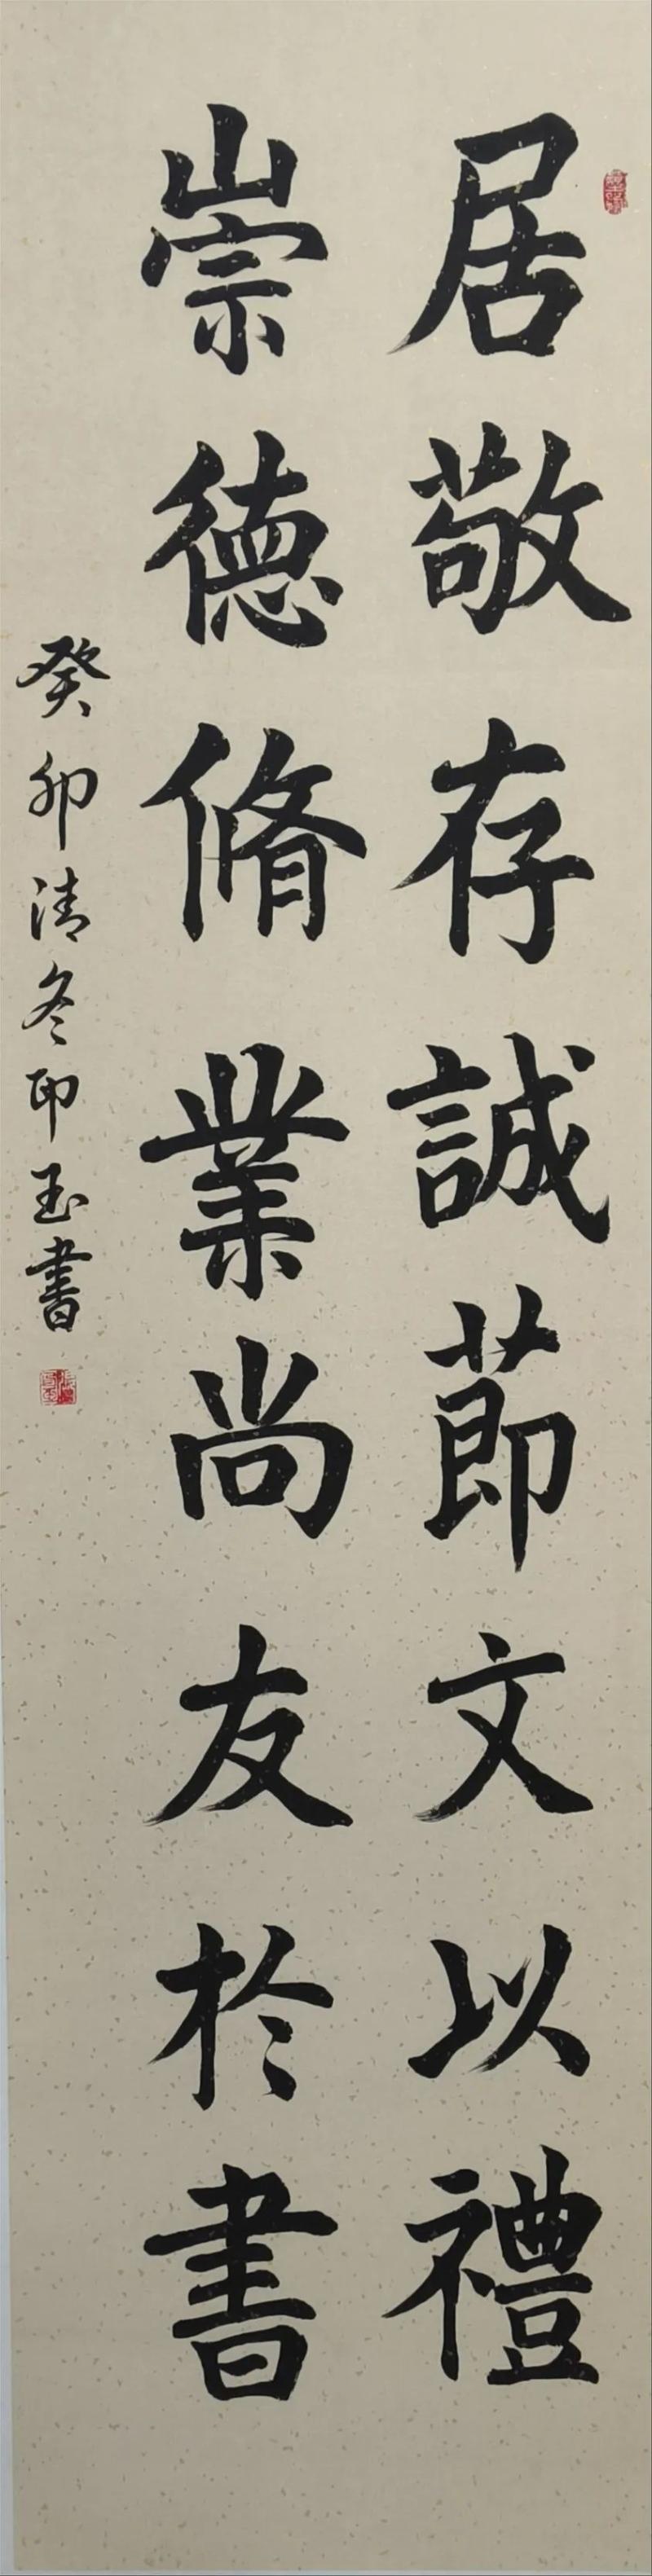 居敬存誠莭文以禮
崇德脩業尚友於書
癸卯清冬印玉書